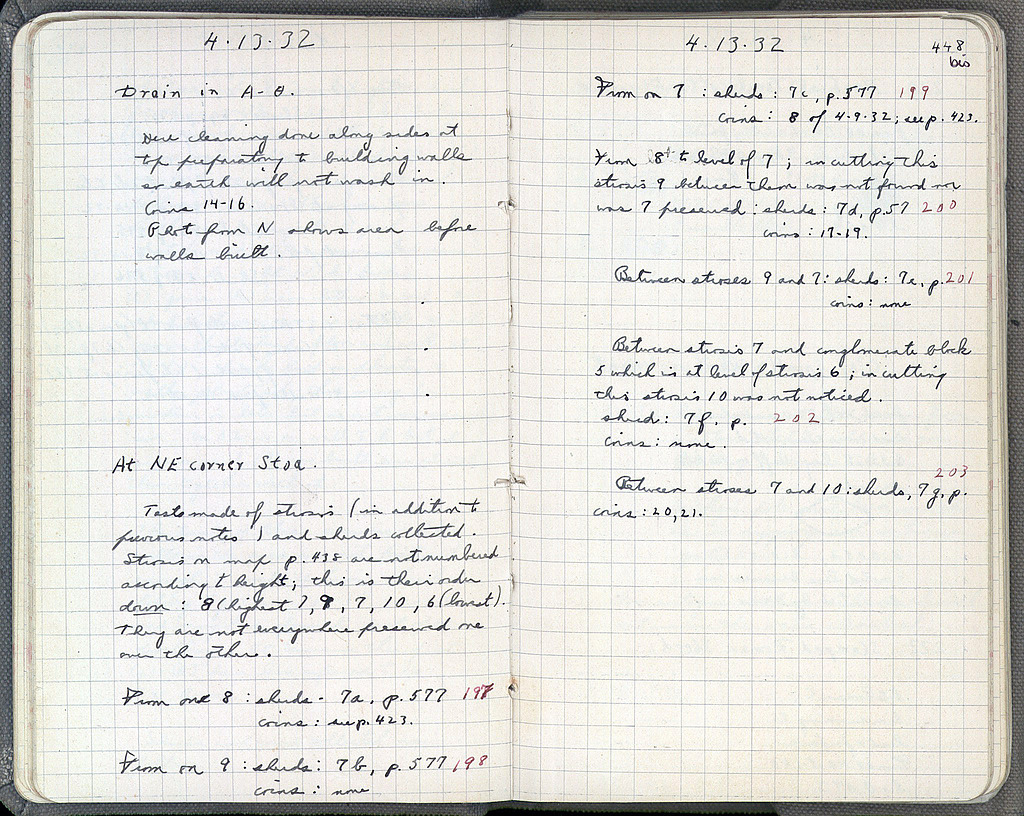 4.13.32
Drain in A-Θ.
Here cleaning done along sides at
top preparatory to building walls
so earth will not wash in.
Coins 14-16.
Phot from N shows area before
walls built.
At NE corner Stoa.
Tests made of strosis (in addition to
previous notes) and sherds collected.
Strosis on map p. 438 are not numbered
according to height; this is their order
down: 8 (highest), 9, 7, 10, 6 (lowest).
They are not everywhere preserved one
over the other.
From on 8 : sherds - 7a, p. 577 197
coins : see p. 423.
From on 9 : sherds : 7b, p. 577 198
coins : none
4.13.32
448
bis
From on 7 : sherds : 7c, p. 577 199
coins : 8 of 4.9.32; see p. 423.
From 8 to level of 7 ; in cutting this
strosis 9 between them was not found nor
was 7 preserved : sherds : 7d, p. 57 200
coins : 17-19.
Between stroses 9 and 7 : sherds : 7e, p. 201
coins : none
Between strosis 7 and conglomerate block
5 which is at level of strosis 6 ; in cutting
this strosis 10 was not noticed.
sherd : 7f, p. 202
coins : none.
203
Between stroses 7 and 10 : sherds, 7g, p.
coins : 20, 21.